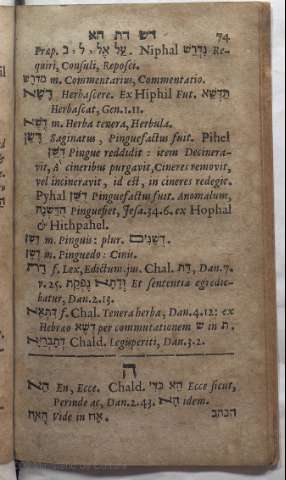 דש דת הא 74
Præp. על אל, ל, ב. Niphal נִדְרַשׁ Re-
quiri, Consuli, Reposci.
מִדְרָשׁ m. Commentarius, Commentatio.
דָּשָׁא Herbascere. Ex Hiphil Fut. תַּדְשֵׁא
Herbascat, Gen. 1. 11.
דֶּשֶׁא m. Herba tenera, Herbula.
דָּשֵׁן Saginatus, Pinguefactus fuit. Pihel
דִּשֵּׁן Pingue reddidit: item Decinera-
vit, à cineribus purgavit, Cineres removit,
vel incineravit, id est, in cineres redegit.
Pyhal דֻּשַּׁן Pinguefactus fuit. Anomalum,
Pinguefiet, Jesa. 34. 6. ex Hophal
& Hithpahel.
דָּשֵׁן m. Pinguis: plur. דְּשֵׁנִים.
דֶּשֶׁן m. Pinguedo: Cinis.
דָּת f. Lex, Edictum, jus. Chal. דָּת, Dan. 7.
v. 25. וְדָתָא נֶפְקַת Et sententia egredie-
batur, Dan. 2. 13.
דִּתְאָא f. Chal. Tenera herba, Dan. 4. 12: ex
Hebræo דשא per commutationem ש in ת.
דְּתָבְרַיָּא Chald. Legisperiti, Dan. 3. 2.
ה
הֵא En, Ecce. Chald. הא כדי Ecce sicut,
Perinde ac, Dan. 2. 43. הָא idem.
הֶאָח Vide in אח.
הבהב